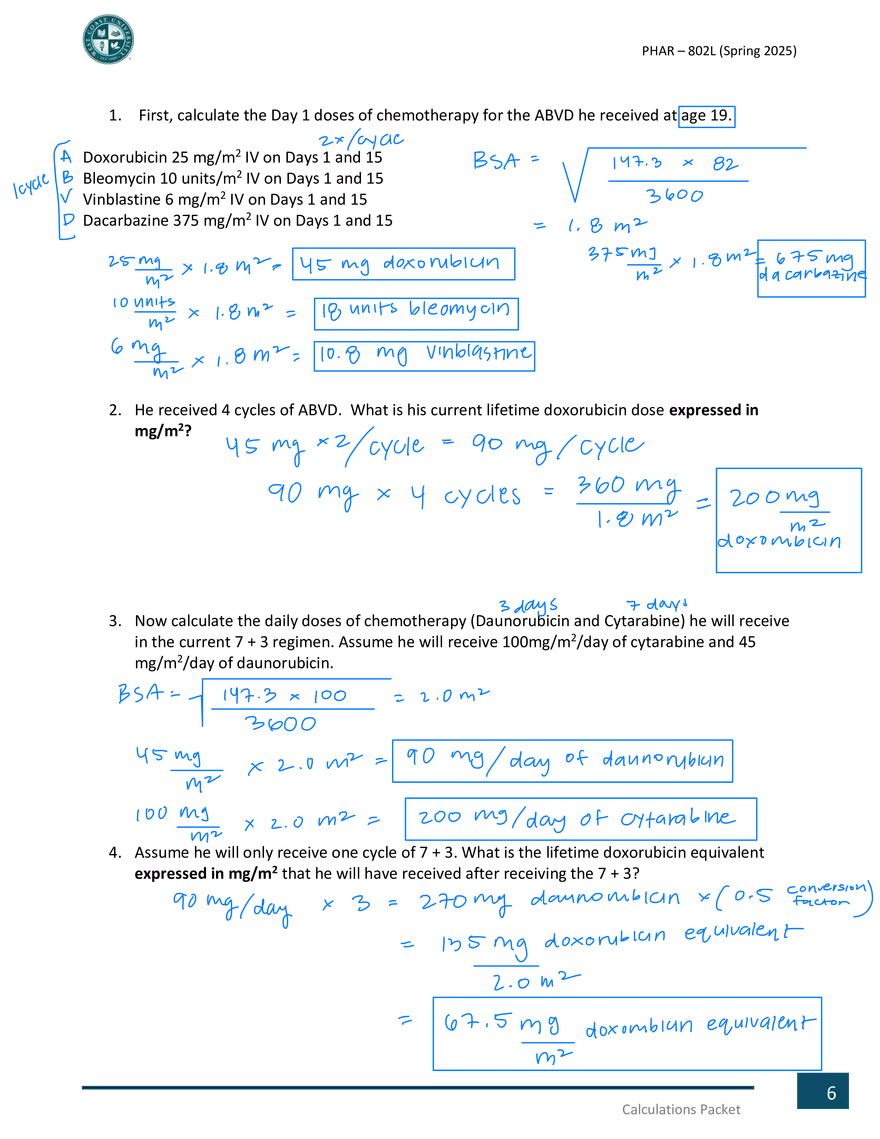 WEST COAST UNIVERSITY
PHAR – 802L (Spring 2025)
1. First, calculate the Day 1 doses of chemotherapy for the ABVD he received at age 19.
2x/cycle
1cycle
A Doxorubicin 25 mg/m² IV on Days 1 and 15
B Bleomycin 10 units/m² IV on Days 1 and 15
V Vinblastine 6 mg/m² IV on Days 1 and 15
D Dacarbazine 375 mg/m² IV on Days 1 and 15
BSA = √ 147.3 × 82 / 3600
= 1.8 m²
25 mg/m² × 1.8 m² = 45 mg doxorubicin
375 mg/m² × 1.8 m² = 675 mg dacarbazine
10 units/m² × 1.8 m² = 18 units bleomycin
6 mg/m² × 1.8 m² = 10.8 mg vinblastine
2. He received 4 cycles of ABVD. What is his current lifetime doxorubicin dose expressed in
mg/m²?
45 mg ×2/cycle = 90 mg/cycle
90 mg × 4 cycles = 360 mg / 1.8 m² = 200 mg/m² doxorubicin
3 days 7 days
3. Now calculate the daily doses of chemotherapy (Daunorubicin and Cytarabine) he will receive
in the current 7 + 3 regimen. Assume he will receive 100mg/m²/day of cytarabine and 45
mg/m²/day of daunorubicin.
BSA = √ 147.3 × 100 / 3600 = 2.0 m²
45 mg/m² × 2.0 m² = 90 mg/day of daunorubicin
100 mg/m² × 2.0 m² = 200 mg/day of cytarabine
4. Assume he will only receive one cycle of 7 + 3. What is the lifetime doxorubicin equivalent
expressed in mg/m² that he will have received after receiving the 7 + 3?
90 mg/day × 3 = 270 mg daunorubicin × (0.5 conversion factor)
= 135 mg doxorubicin equivalent / 2.0 m²
= 67.5 mg/m² doxorubicin equivalent
6
Calculations Packet